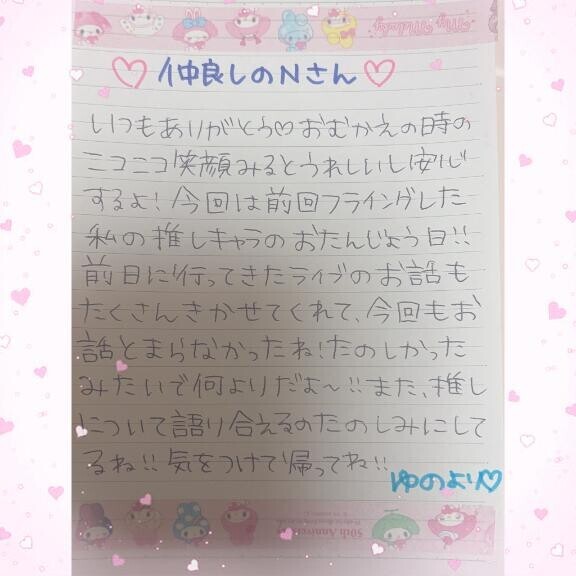 My Melody
♡仲良しのNさん♡
いつもありがとう♡おむかえの時の
ニコニコ笑顔みるとうれしいし安心
するよ!今回は前回フライングした
私の推しキャラのおたんじょう日!!
前日に行ってきたライブのお話も
たくさんきかせてくれて、今回もお
話とまらなかったね!たのしかった
みたいで何よりだよ〜!!また、推し
について語り合えるのたのしみにして
るね!!気をつけて帰ってね!!
ゆのより♡
50th Anniversary